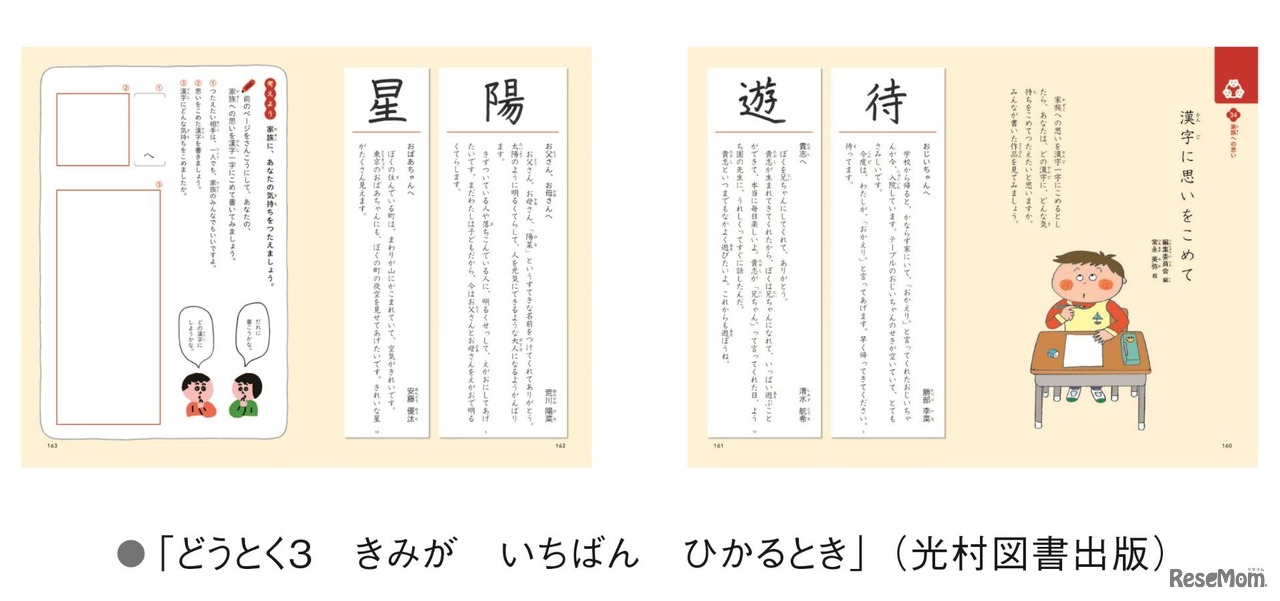 34
家族への思い
漢字に思いをこめて
編集委員会 編
常永 美弥 絵
家族への思いを漢字一字にこめるとし
たら、あなたは、どの漢字に、どんな気
持ちをこめてつたえたいと思いますか。
みんなが書いた作品を見てみましょう。
160
待
おじいちゃんへ
勝部 李菜
学校から帰ると、かならず家にいて、「おかえり。」と言ってくれたおじいちゃ
んが今、入院しています。テーブルのおじいちゃんのせきが空いていて、とても
さみしいです。
今度は、わたしが、「おかえり。」と言ってあげます。早く帰ってきてください。
待ってます。
遊
貴志へ
清水 航希
ぼくを兄ちゃんにしてくれて、ありがとう。
貴志が生まれてきてくれたから、ぼくは兄ちゃんになれて、いっぱい遊ぶこと
ができて、本当に毎日楽しいよ。貴志が「兄ちゃん」って言ってくれた日、よう
ち園の先生に、うれしくてすぐに話したんだ。
貴志といつまでもなかよく遊びたいよ。これからも遊ぼうね。
161
陽
お父さん、お母さんへ
荒川 陽菜
お父さん、お母さん、「陽菜」というすてきな名前をつけてくれてありがとう。
太陽のように明るくてらして、人を元気にできるような大人になるようがんばり
ます。
きずついている人や落ちこんでいる人に、明るくせっして、えがおにしてあげ
たいです。まだわたしは子どもだから、今はお父さんとお母さんをえがおで明る
くてらします。
162
星
おばあちゃんへ
安藤 優汰
ぼくの住んでいる町は、まわりが山にかこまれていて、空気がきれいです。
東京のおばあちゃんにも、ぼくの町の夜空を見せてあげたいです。きれいな星
がたくさん見えます。
考えよう
家族に、あなたの気持ちをつたえましょう。
前のページをさんこうにして、あなたの、
家族への思いを漢字一字にこめて書いてみましょう。
①つたえたい相手は、一人でも、家族のみんなでもいいですよ。
②思いをこめた漢字を書きましょう。
③漢字にどんな気持ちをこめましたか。
だれに
書こうかな。
どの漢字に
しようかな。
①
へ
②
③
163
●「どうとく3 きみが いちばん ひかるとき」（光村図書出版）
ReseMom.